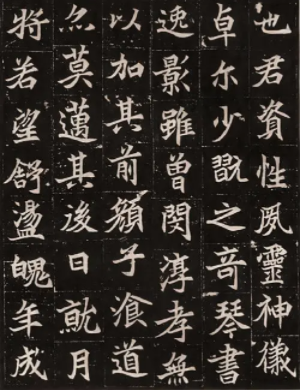 也君資性夙靈神儀
卓尔少翫之奇琴書
逸影雖曾閔淳孝無
以加其前顏子飡道
亦莫邁其後日就月
將若望舒盪魄年成